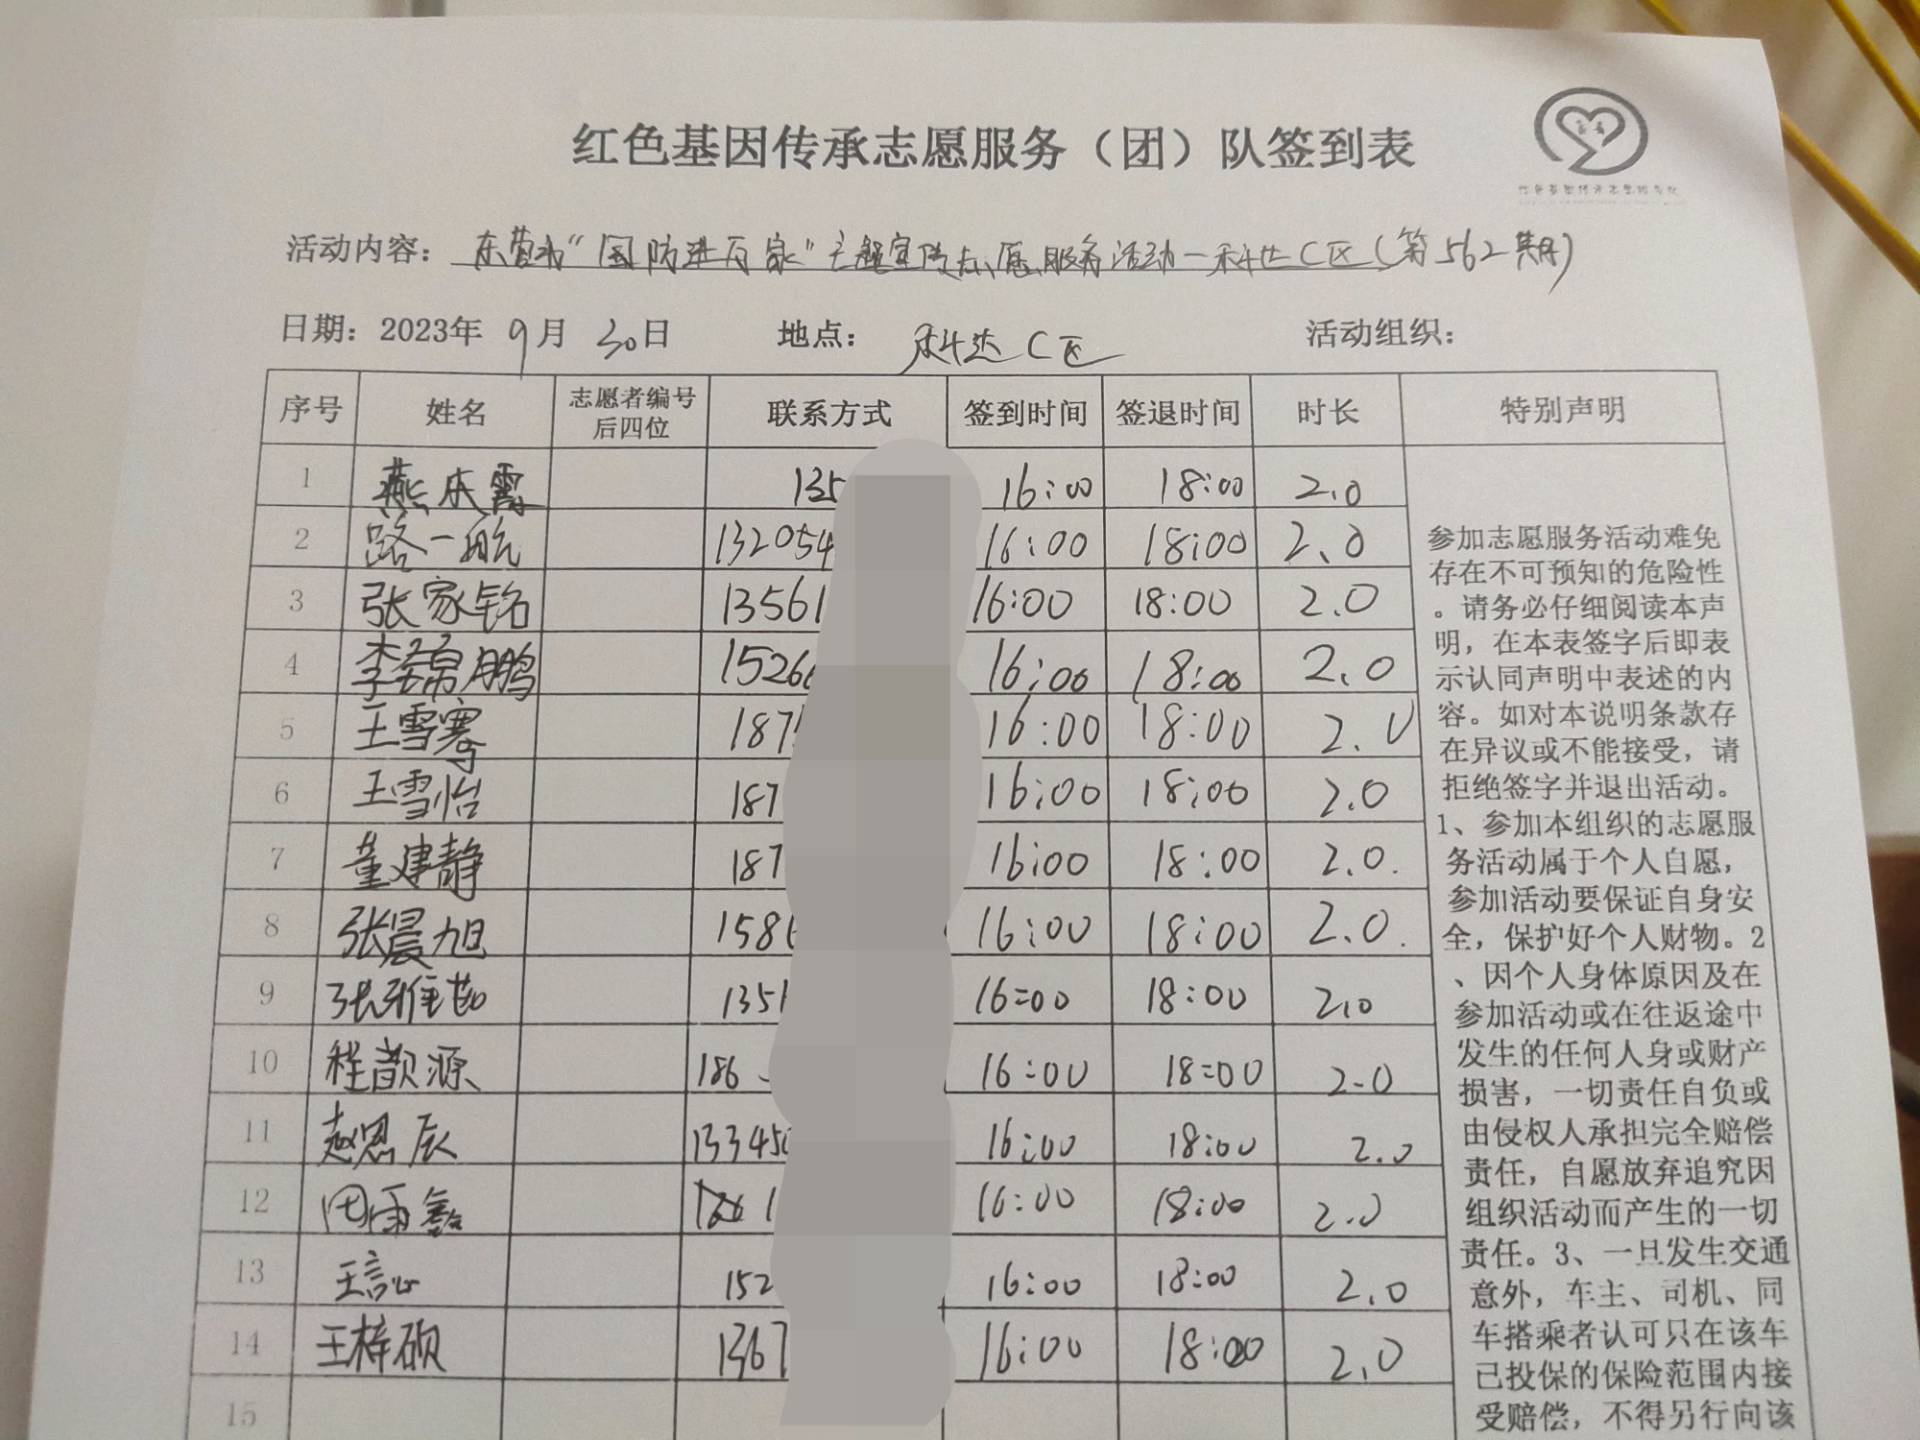 红色基因传承志愿服务（团）队签到表
活动内容：东营市“国防进万家”主题宣传志愿服务活动—科达C区（第562期）
日期：2023年 9月 30日 地点：科达C区 活动组织：
序号 姓名 志愿者编号后四位 联系方式 签到时间 签退时间 时长 特别声明
1 燕 霞 135 16:00 18:00 2.0
2 路一航 132054 16:00 18:00 2.0
3 张家铭 13561 16:00 18:00 2.0
4 李 鹏 1526 16:00 18:00 2.0
5 王雪骞 187 16:00 18:00 2.0
6 王雪怡 187 16:00 18:00 2.0
7 董建静 187 16:00 18:00 2.0.
8 张晨旭 1586 16:00 18:00 2.0.
9 张雅茹 135 16=00 18:00 2.0
10 程 源 186 16:00 18=00 2-0
11 赵恩辰 13345 16:00 18:00 2.0
12 田雨鑫 1 16:00 18:00 2.0
13 王 152 16:00 18:00 2.0
14 王梓硕 1367 16:00 18:00 2.0
15
参加志愿服务活动难免
存在不可预知的危险性
。请务必仔细阅读本声
明，在本表签字后即表
示认同声明中表述的内
容。如对本说明条款存
在异议或不能接受，请
拒绝签字并退出活动。
1、参加本组织的志愿服
务活动属于个人自愿，
参加活动要保证自身安
全，保护好个人财物。2
、因个人身体原因及在
参加活动或在往返途中
发生的任何人身或财产
损害，一切责任自负或
由侵权人承担完全赔偿
责任，自愿放弃追究因
组织活动而产生的一切
责任。3、一旦发生交通
意外，车主、司机、同
车搭乘者认可只在该车
已投保的保险范围内接
受赔偿，不得另行向该